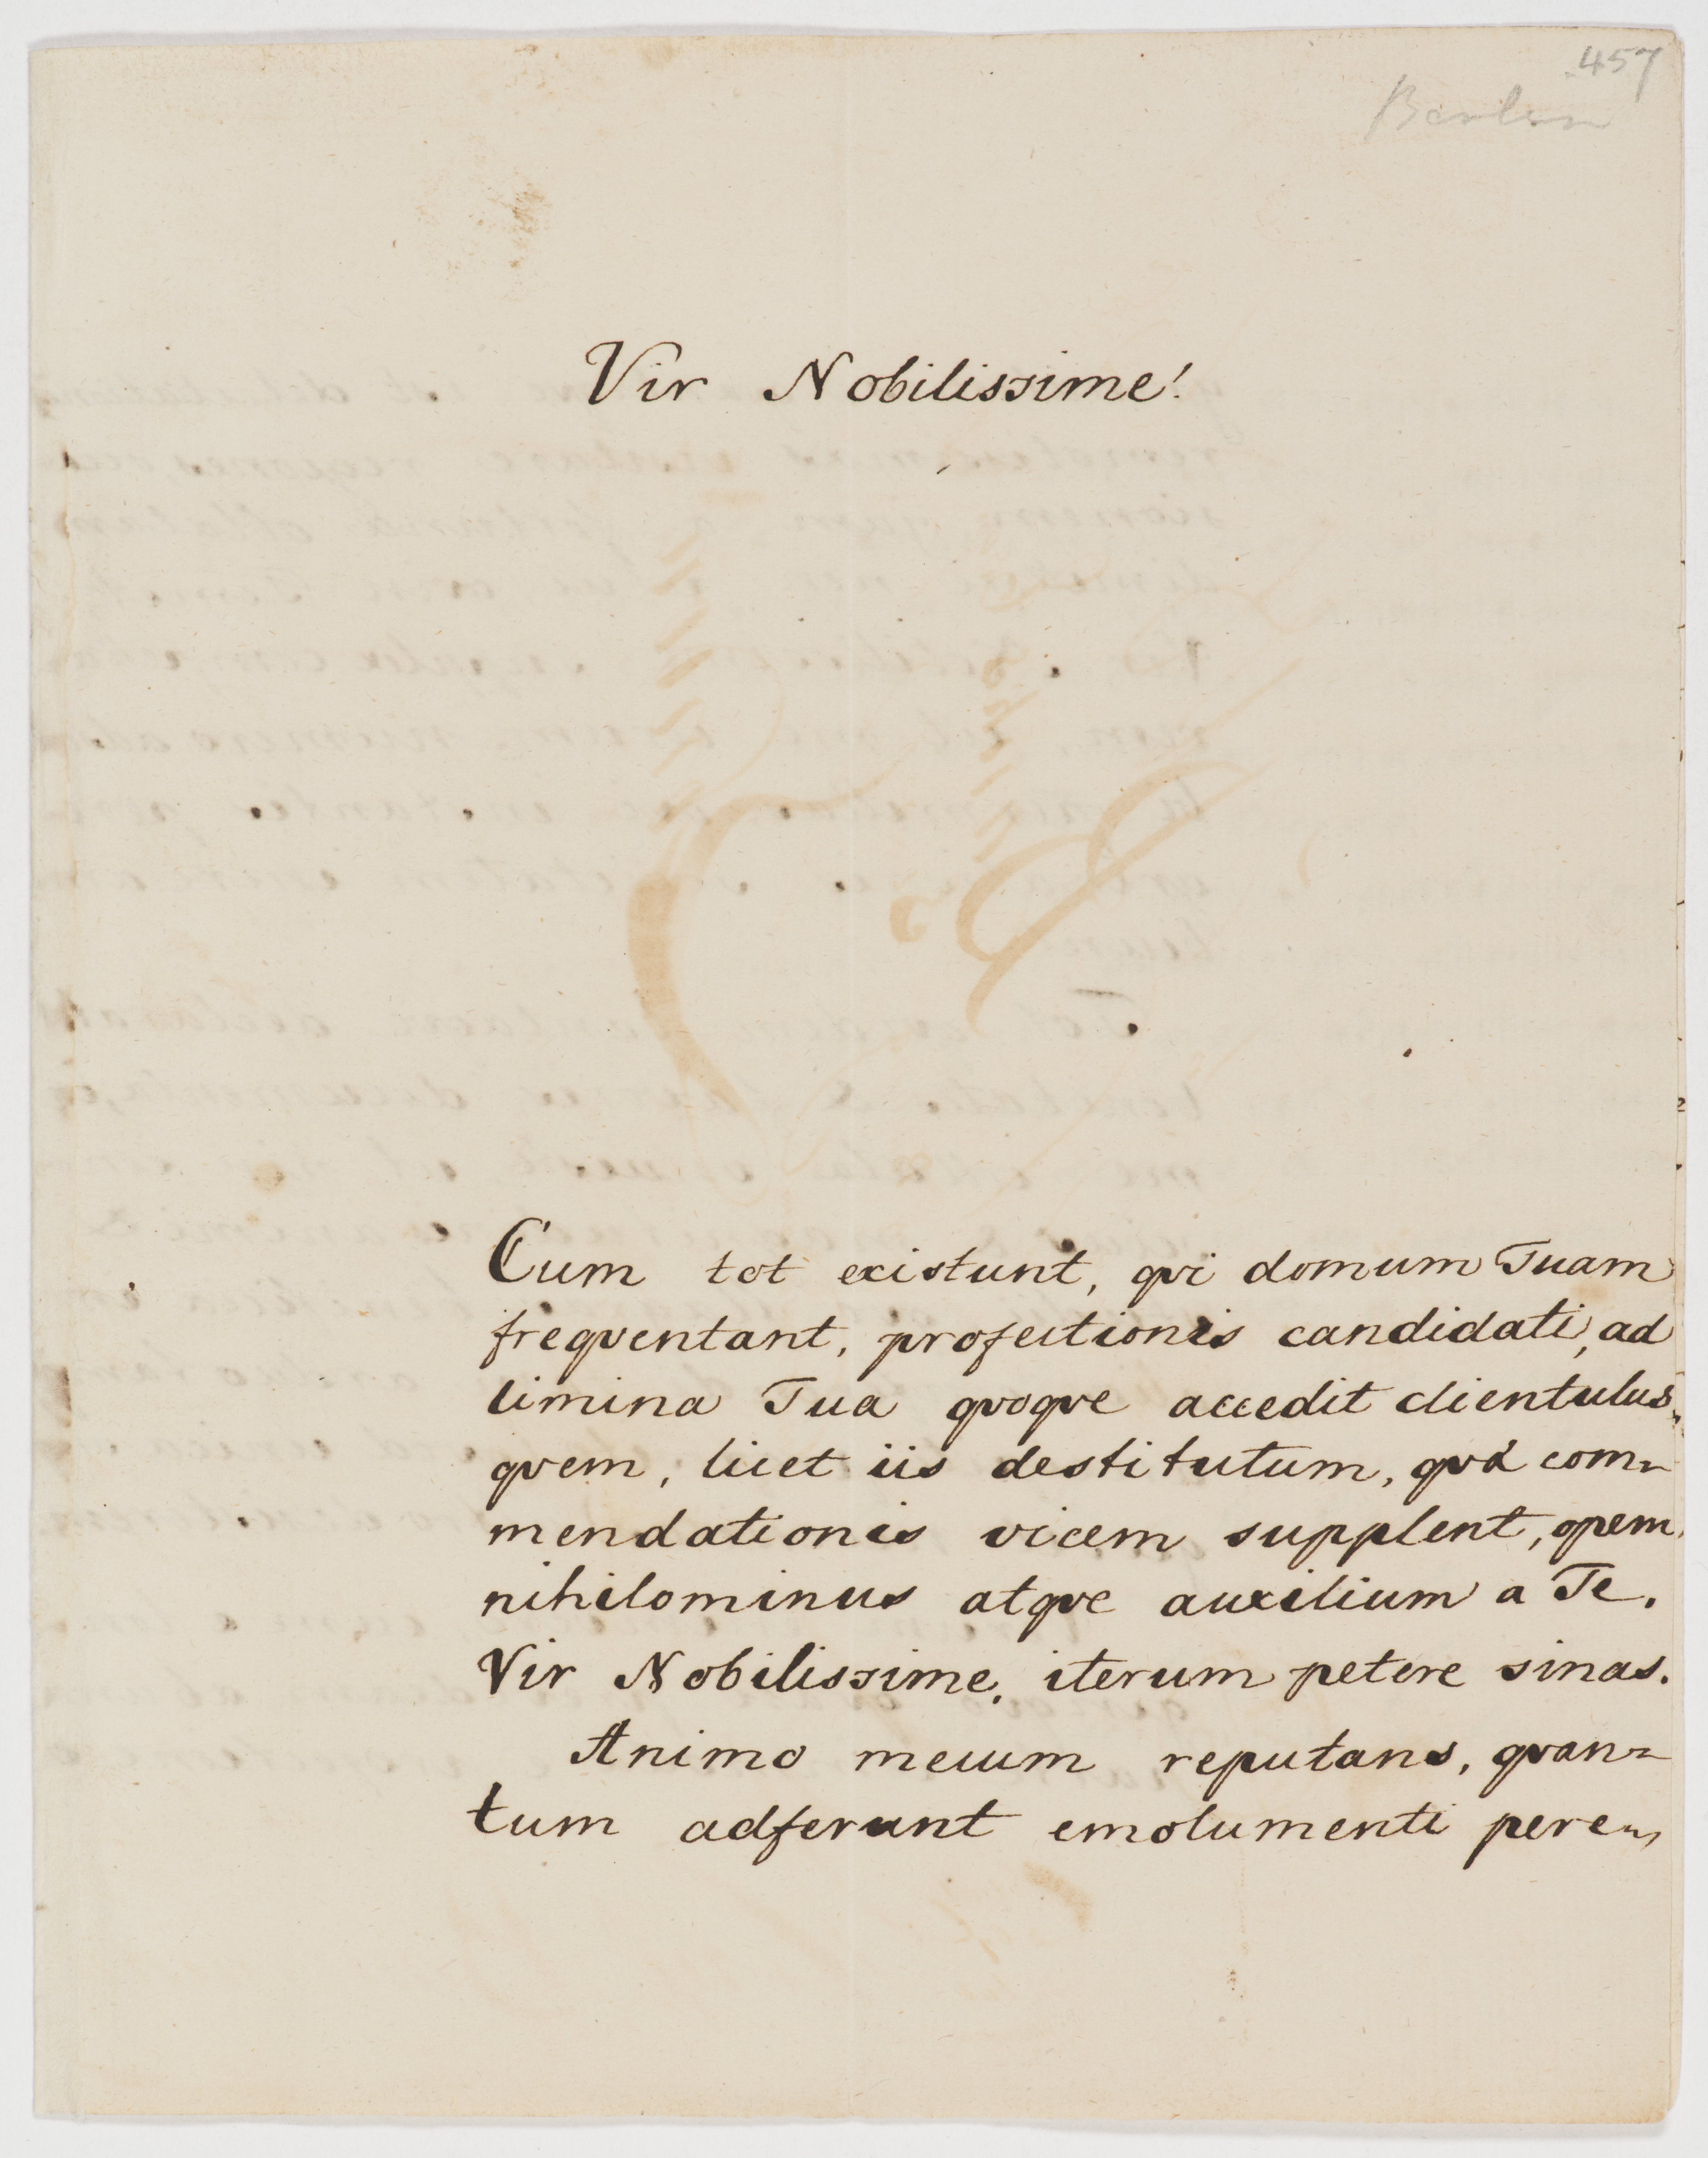 457
Vir Nobilissime!
Cum tot existunt, qvi domum Tuam
freqventant, profectionis candidati, ad
limina Tua qvoqve accedit clientulus,
qvem, licet iis destitutum, qvæ com-
mendationis vicem supplent, opem
nihilominus atqve auxilium a Te,
Vir Nobilissime, iterum petere sinas.
Animo mecum reputans, qvan-
tum adferunt emolumenti pere-